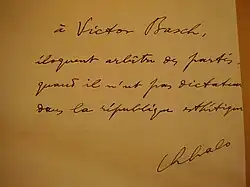 à Victor Basch,
éloquent arbitre des partis
quand il n'est pas dictateur
dans la république esthétique